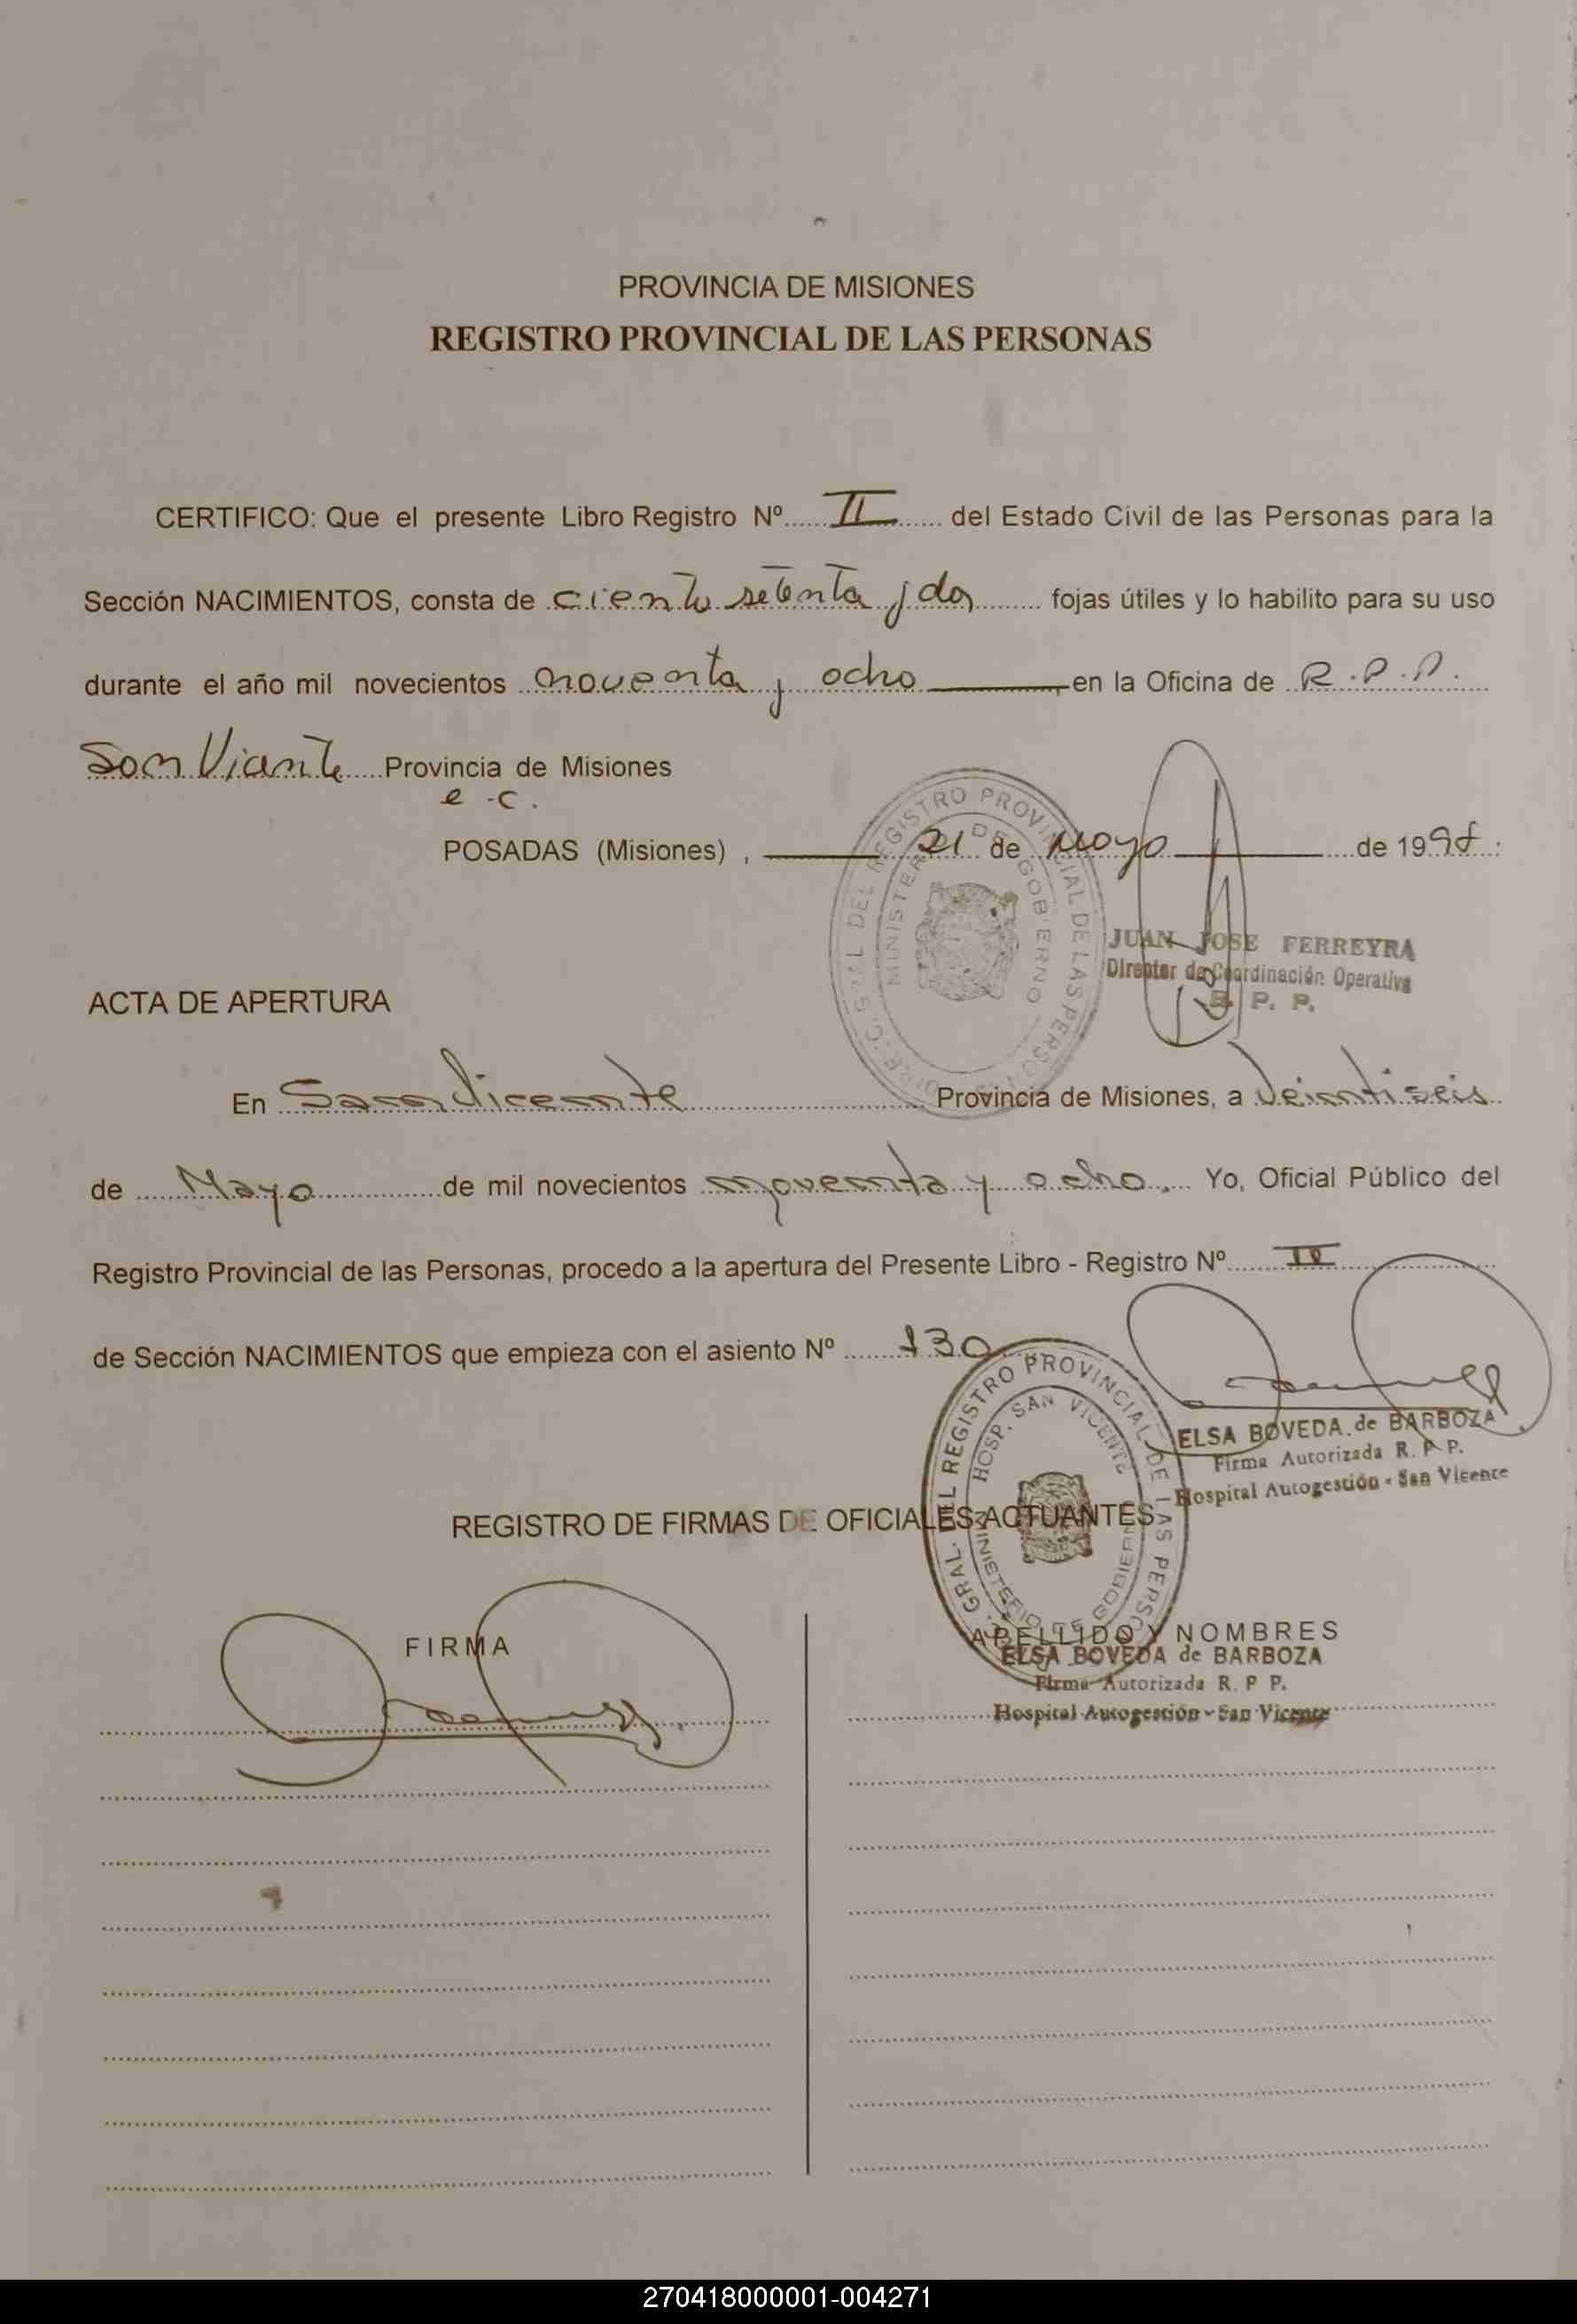 PROVINCIA DE MISIONES
REGISTRO PROVINCIAL DE LAS PERSONAS
CERTIFICO: Que el presente Libro Registro Nº II del Estado Civil de las Personas para la
Sección NACIMIENTOS, consta de ciento setenta y dos fojas útiles y lo habilito para su uso
durante el año mil novecientos noventa y ocho en la Oficina de R.P.P.
San Vicente Provincia de Misiones
e.c.
POSADAS (Misiones), 21 de Mayo de 1998.
REGISTRO PROVINCIAL DE LAS PERSONAS
MINISTERIO DE GOBIERNO
JUAN JOSE FERREYRA
Director de Coordinación Operativa
R. P. P.
ACTA DE APERTURA
En San Vicente Provincia de Misiones, a Veintiseis
de Mayo de mil novecientos noventa y ocho. Yo, Oficial Público del
Registro Provincial de las Personas, procedo a la apertura del Presente Libro - Registro Nº II
de Sección NACIMIENTOS que empieza con el asiento Nº 130
GRAL. DEL REGISTRO PROVINCIAL DE LAS PERSO
HOSP. SAN VICENTE
MINISTERIO DE GOBIERNO
ELSA BOVEDA de BARBOZA
Firma Autorizada R. P. P.
Hospital Autogestión - San Vicente
REGISTRO DE FIRMAS DE OFICIALES ACTUANTES
FIRMA
APELLIDO Y NOMBRES
ELSA BOVEDA de BARBOZA
Firma Autorizada R. P P.
Hospital Autogestión - San Vicente
270418000001-004271